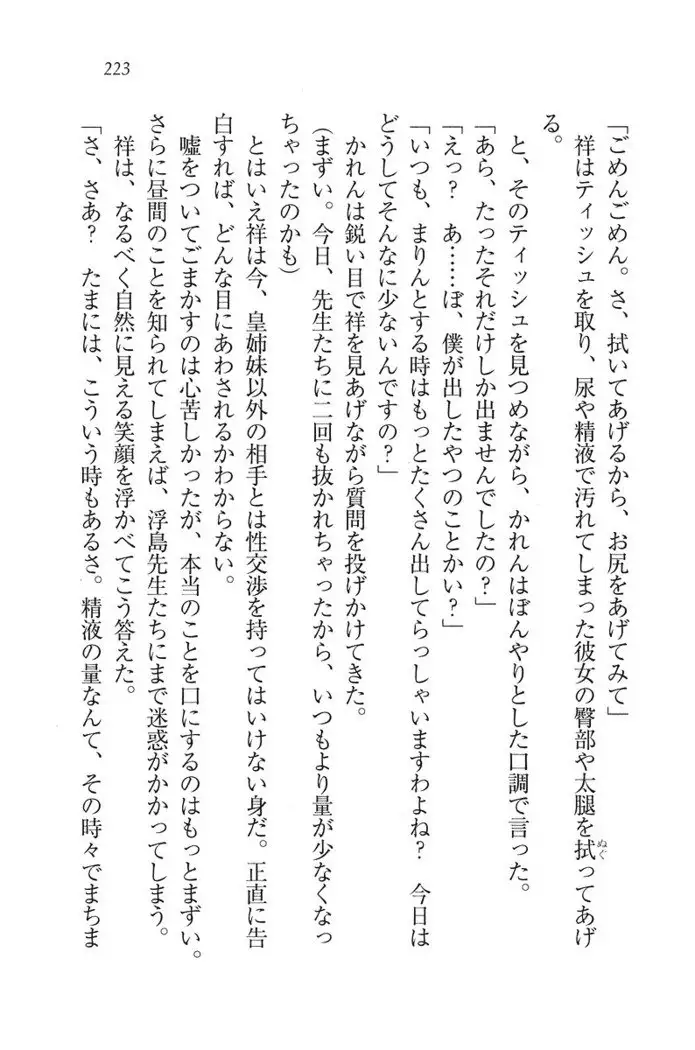 223
「ごめんごめん。さ、拭いてあげるから、お尻をあげてみて」
　祥はティッシュを取り、尿や精液で汚れてしまった彼女の臀部や太腿を拭ってあげ
ぬぐ
る。
　と、そのティッシュを見つめながら、かれんはぼんやりとした口調で言った。
「あら、たったそれだけしか出ませんでしたの？」
「えっ？　あ……ぼ、僕が出したやつのことかい？」
「いつも、まりんとする時はもっとたくさん出してらっしゃいますわよね？　今日は
どうしてそんなに少ないんですの？」
　かれんは鋭い目で祥を見あげながら質問を投げかけてきた。
（まずい。今日、先生たちに二回も抜かれちゃったから、いつもより量が少なくなっ
ちゃったのかも）
　とはいえ祥は今、皇姉妹以外の相手とは性交渉を持ってはいけない身だ。正直に告
白すれば、どんな目にあわされるかわからない。
　嘘をついてごまかすのは心苦しかったが、本当のことを口にするのはもっとまずい。
さらに昼間のことを知られてしまえば、浮島先生たちにまで迷惑がかかってしまう。
　祥は、なるべく自然に見える笑顔を浮かべてこう答えた。
「さ、さあ？　たまには、こういう時もあるさ。精液の量なんて、その時々でまちま